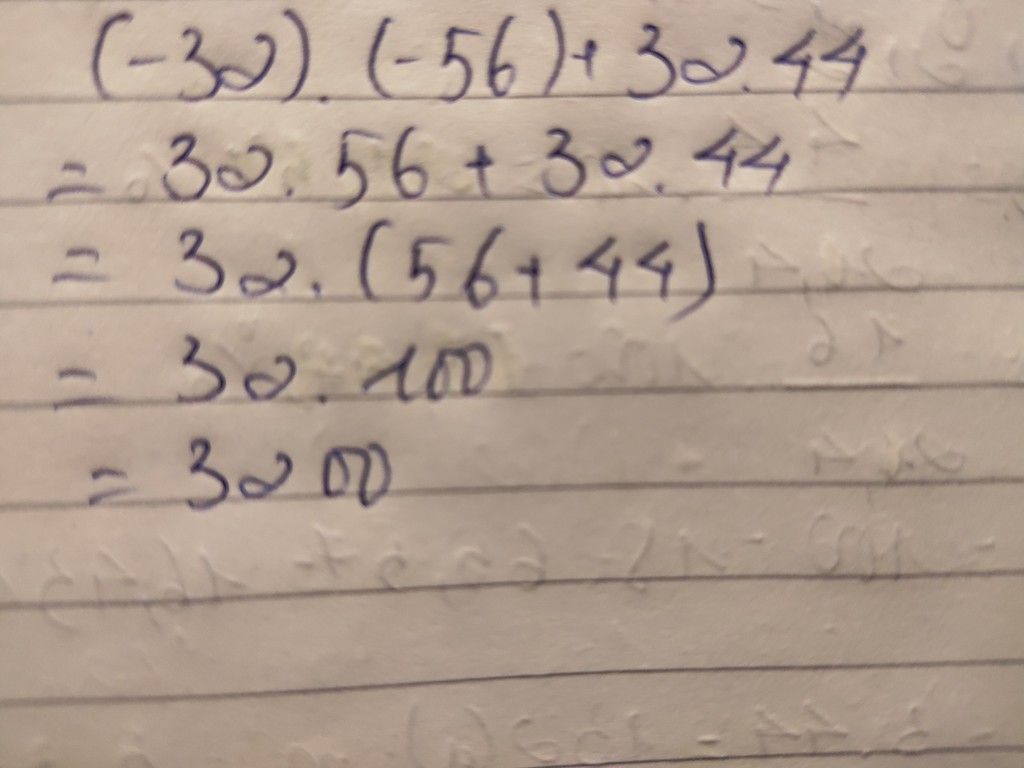 (-32). (-56)+ 32.44
= 32. 56 + 32. 44
= 32. (56+ 44)
= 32. 100
= 3200